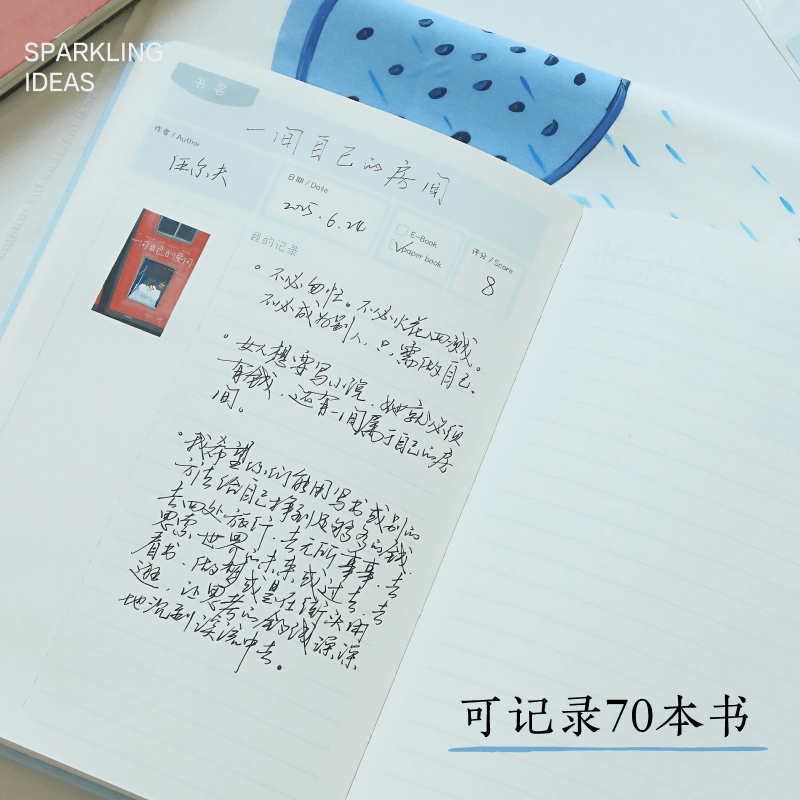 SPARKLING
IDEAS
书名
一间自己的房间
作者 / Author
伍尔夫
日期 / Date
2025.6.24
E-Book
paper book
评分 / Score
8
一间自己的房间
我的记录
不必匆忙。不必火花四溅。
不必成为别人,只需做自己.
女人想要写小说,她就必须
有钱,还有一间属于自己的房
间。
我希望你们能用写书或别的
方法给自己挣到足够多的钱,
去四处旅行,去无所事事,去
思索世界的未来或过去,去
看书、做梦或是在街头闲
逛,让思考的钓线深深
地沉到溪流中去。
可记录70本书